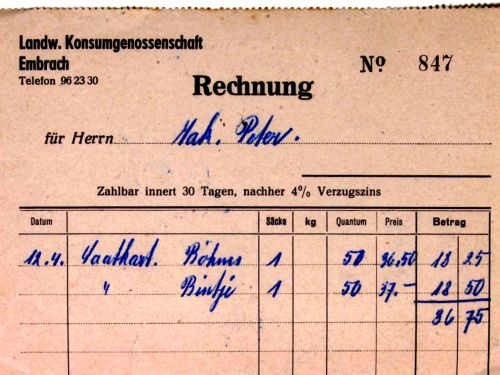 Landw. Konsumgenossenschaft
Embrach
Telefon 96 23 30
Nº 847
Rechnung
für Herrn Hak. Peter.
Zahlbar innert 30 Tagen, nachher 4% Verzugszins
Datum Säcke kg Quantum Preis Betrag
12.4. Saatkart. Böhms 1 50 36.50 18 25
" Bintje 1 50 37.- 18 50
36 75